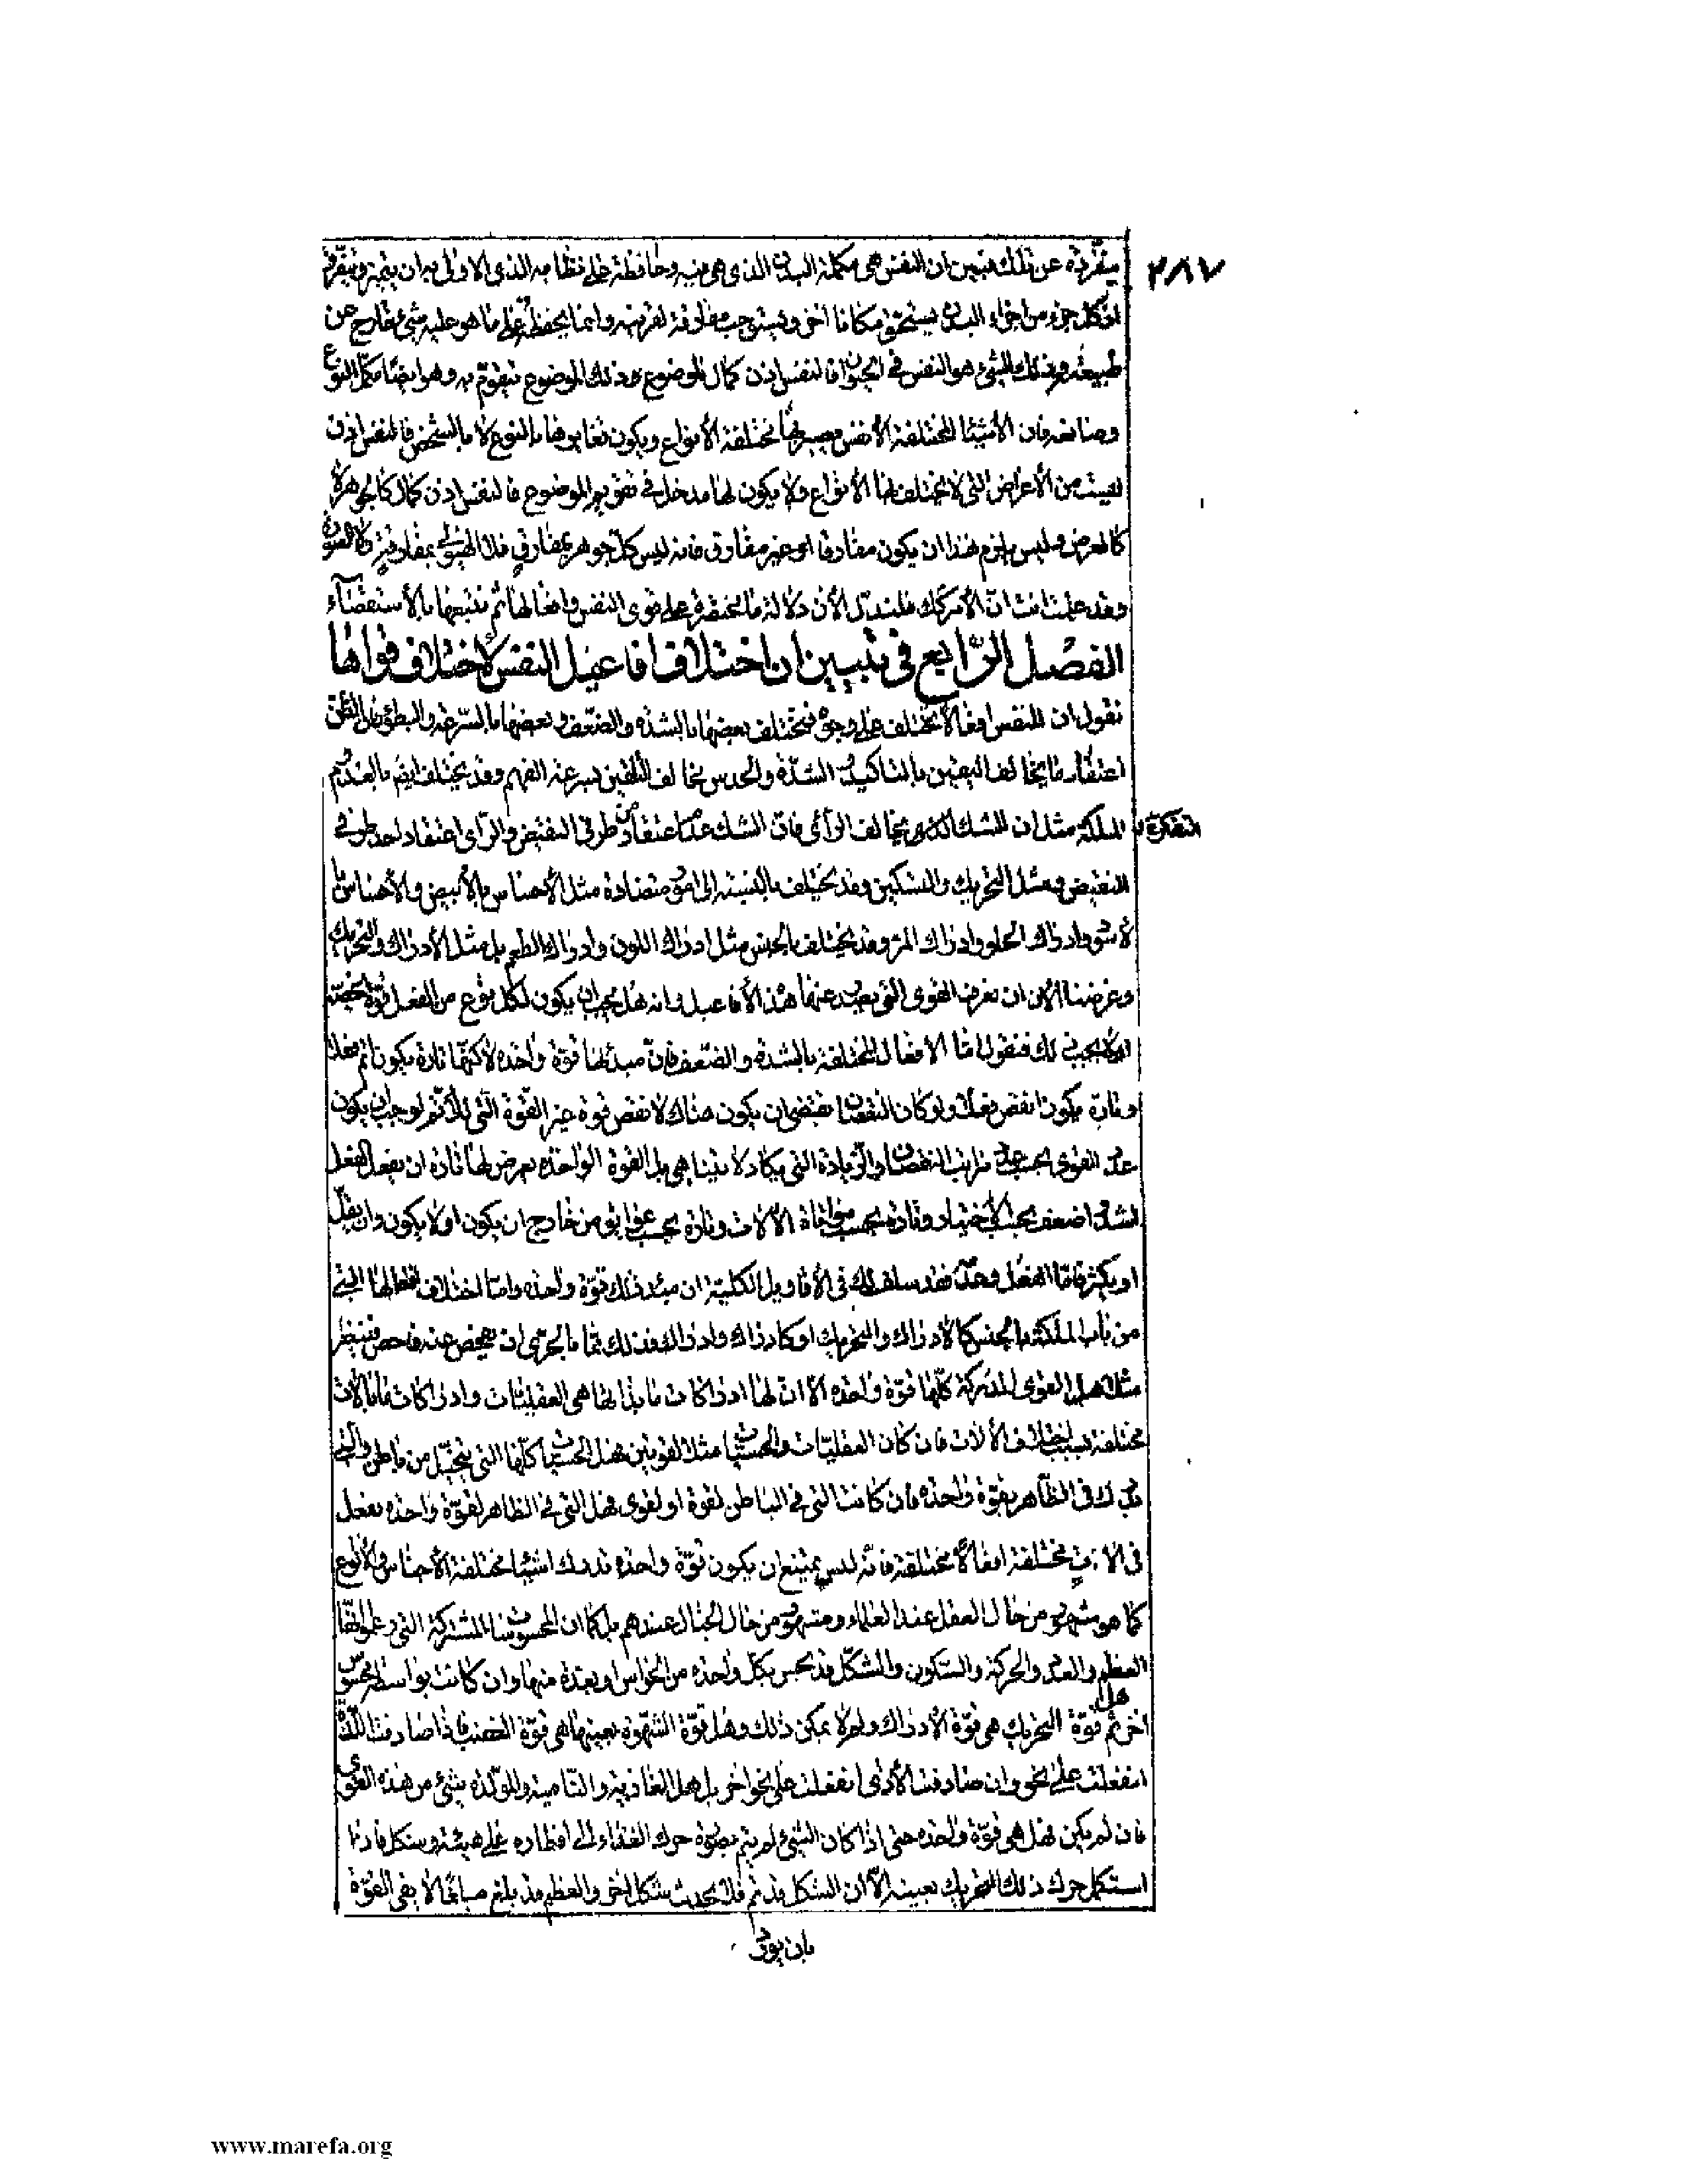 ٢٨٧
متفردة عن تلك فتبين ان النفس هى مكملة البدن الذى هى فيه وحافظة على نظامه الذى الاولى به ان يتميز ويتفرق
اذ كل جزء من اجزاء البدن يستحق مكانا اخر ويستوجب مفارقة لقرينه وانما يحفظه على ما هو عليه شىء خارج عن
طبيعته وذلك الشىء هو النفس فى الحيوان فالنفس اذن كمال الموضوع ذلك الموضوع يتقوم به وهو ايضا مكمل النوع
وصانعه فان الأشياء المختلفة الأنفس تصير بها مختلفة الأنواع ويكون تغايرها بالنوع لا بالشخص فالنفس اذن
ليست من الأعراض التى لا يختلف بها الأنواع ولا يكون لها مدخل فى تقويم الموضوع فالنفس اذن كمال كالجوهر لا
كالعرض وليس يلزم هذا ان يكون مفارقا او غير مفارق فانه ليس كل جوهر بمفارق فلا الهيولى بمفارقة ولا الصورة
وقد علمت انت ان الأمر كذلك فلندل الأن دلالة ما مختصرة على قوى النفس وافعالها ثم نتبعها بالأستقصاء
الفصل الرابع فى تبيين ان اختلاف افاعيل النفس لاختلاف قواها
نقول ان للنفس افعالا تختلف على وجوه فيختلف بعضها بالشدة والضعف وبعضها بالسرعة والبطؤ فان الظن
اعتقاد ما يخالف اليقين بالتاكيد والشدة والحدس يخالف التلقين بسرعة الفهم وقد يختلف ايضا بالعدم و
الملكة مثل ان الشك يخالف الرأى فان الشك عدم اعتقاد من طرفى النقيض والرأى اعتقاد احد طرفى
النقيض ومثل التحريك والتسكين وقد يختلف بالنسبة الى امور متضادة مثل الأحساس بالأبيض والأحساس با
لأسود وادراك الحلو وادراك المر وقد يختلف بالجنس مثل ادراك اللون وادراك الطعم بل مثل الأدراك والتحريك
وغرضنا الأن ان نعرف القوى التى يصدر عنها هذه الأفاعيل وانه هل يجب ان يكون لكل نوع من الفعل قوة تخصه
او لا يجب ذلك فنقول اما الافعال المختلفة بالشدة والضعف فان مبدئها قوة واحدة لكنها تارة يكون اتم فعلا
وتارة يكون انقص فعلا ولو كان النقصان يقتضى ان يكون هناك للانقص قوة غير القوة التى للأتم لوجب ان يكون
عدد القوى بحسب عدد مراتب النقصان والزيادة التى يكاد لا يتناهى بل القوة الواحدة يعرض لها تارة ان يفعل الفعل
اشد واضعف بحسب الاختيار وتارة بحسب مواتاة الألات وتارة بحسب عوايق من خارج ان يكون او لا يكون وان يقل
او يكثر فاما الفعل وعدمه فقد سلف لك فى الأقاويل الكلية ان مبدء ذلك قوة واحدة واما اختلاف افعالها التى
من باب الملكة بالجنس كالادراك والتحريك او كادراك وادراك فذلك مما بالحرى ان يفحص عنه فاحص فينظر
مثلا هل القوى المدركة كلها قوة واحدة الا ان لها ادراكات ما بذاتها هى العقليات وادراكات ما بالات
مختلفة بسبب اختلاف الألات فان كان العقليات والحسيات مثلا لقوتين فهل الحسيات كلها التى يتخيل من باطن والتى
يدرك فى الظاهر بقوة واحدة فان كانت التى فى الباطن لقوة او لقوى فهل التى فى الظاهر لقوة واحدة يفعل
فى الات مختلفة افعالا مختلفة فانه ليس بممتنع ان يكون قوة واحدة تدرك اشياء مختلفة الأجناس والأنواع
كما هو مشهور من حال العقل عند العلماء ومشهور من حال الخيال عندهم بل كما ان المحسوسات المشتركة التى زعموا انها
العظم والعدد والحركة والسكون والشكل قد يحس بكل واحدة من الحواس او بعدة منها وان كانت بواسطة محسوس
اخر ثم هل قوة التحريك هى قوة الأدراك ولم لا يمكن ذلك وهل قوة الشهوة بعينها هى قوة الغضب فاذا صادفت اللذة
انفعلت على نحو وان صادفت الأذى انفعلت على نحو اخر بل هل الغاذية والنامية والمولدة شىء من هذه القوى
فان لم يكن فهل هى قوة واحدة حتى اذا كان الشىء لم يتم تصوره حرك الغذاء الى اقطاره على هيئة وشكل فاذا
استكمل حرك ذلك التحريك بعينه الا ان الشكل قد تم فلا يحدث شكل اخر والعظم قد بلغ مبلغا لا يفى القوة
بان يورد
www.marefa.org